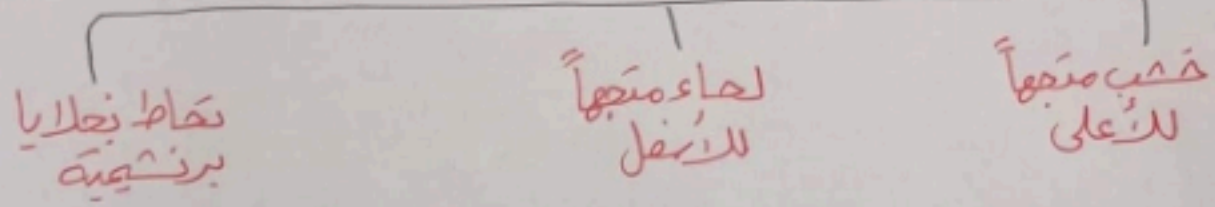 خشب متجهاً
للأعلى
لحاء متجهاً
للأسفل
تحاط بخلايا
برنشيمية